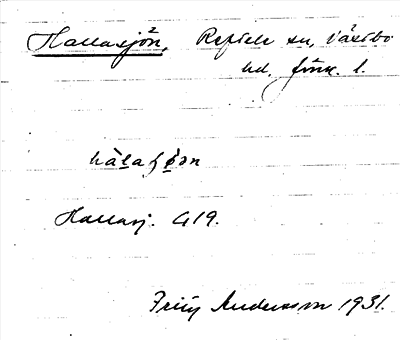 Hallasjön, Reftele sn, Västbo
hd, Jönk. l.
hàlaʃø̀n
Hallasj. G19.
Fritz Andersson 1931.